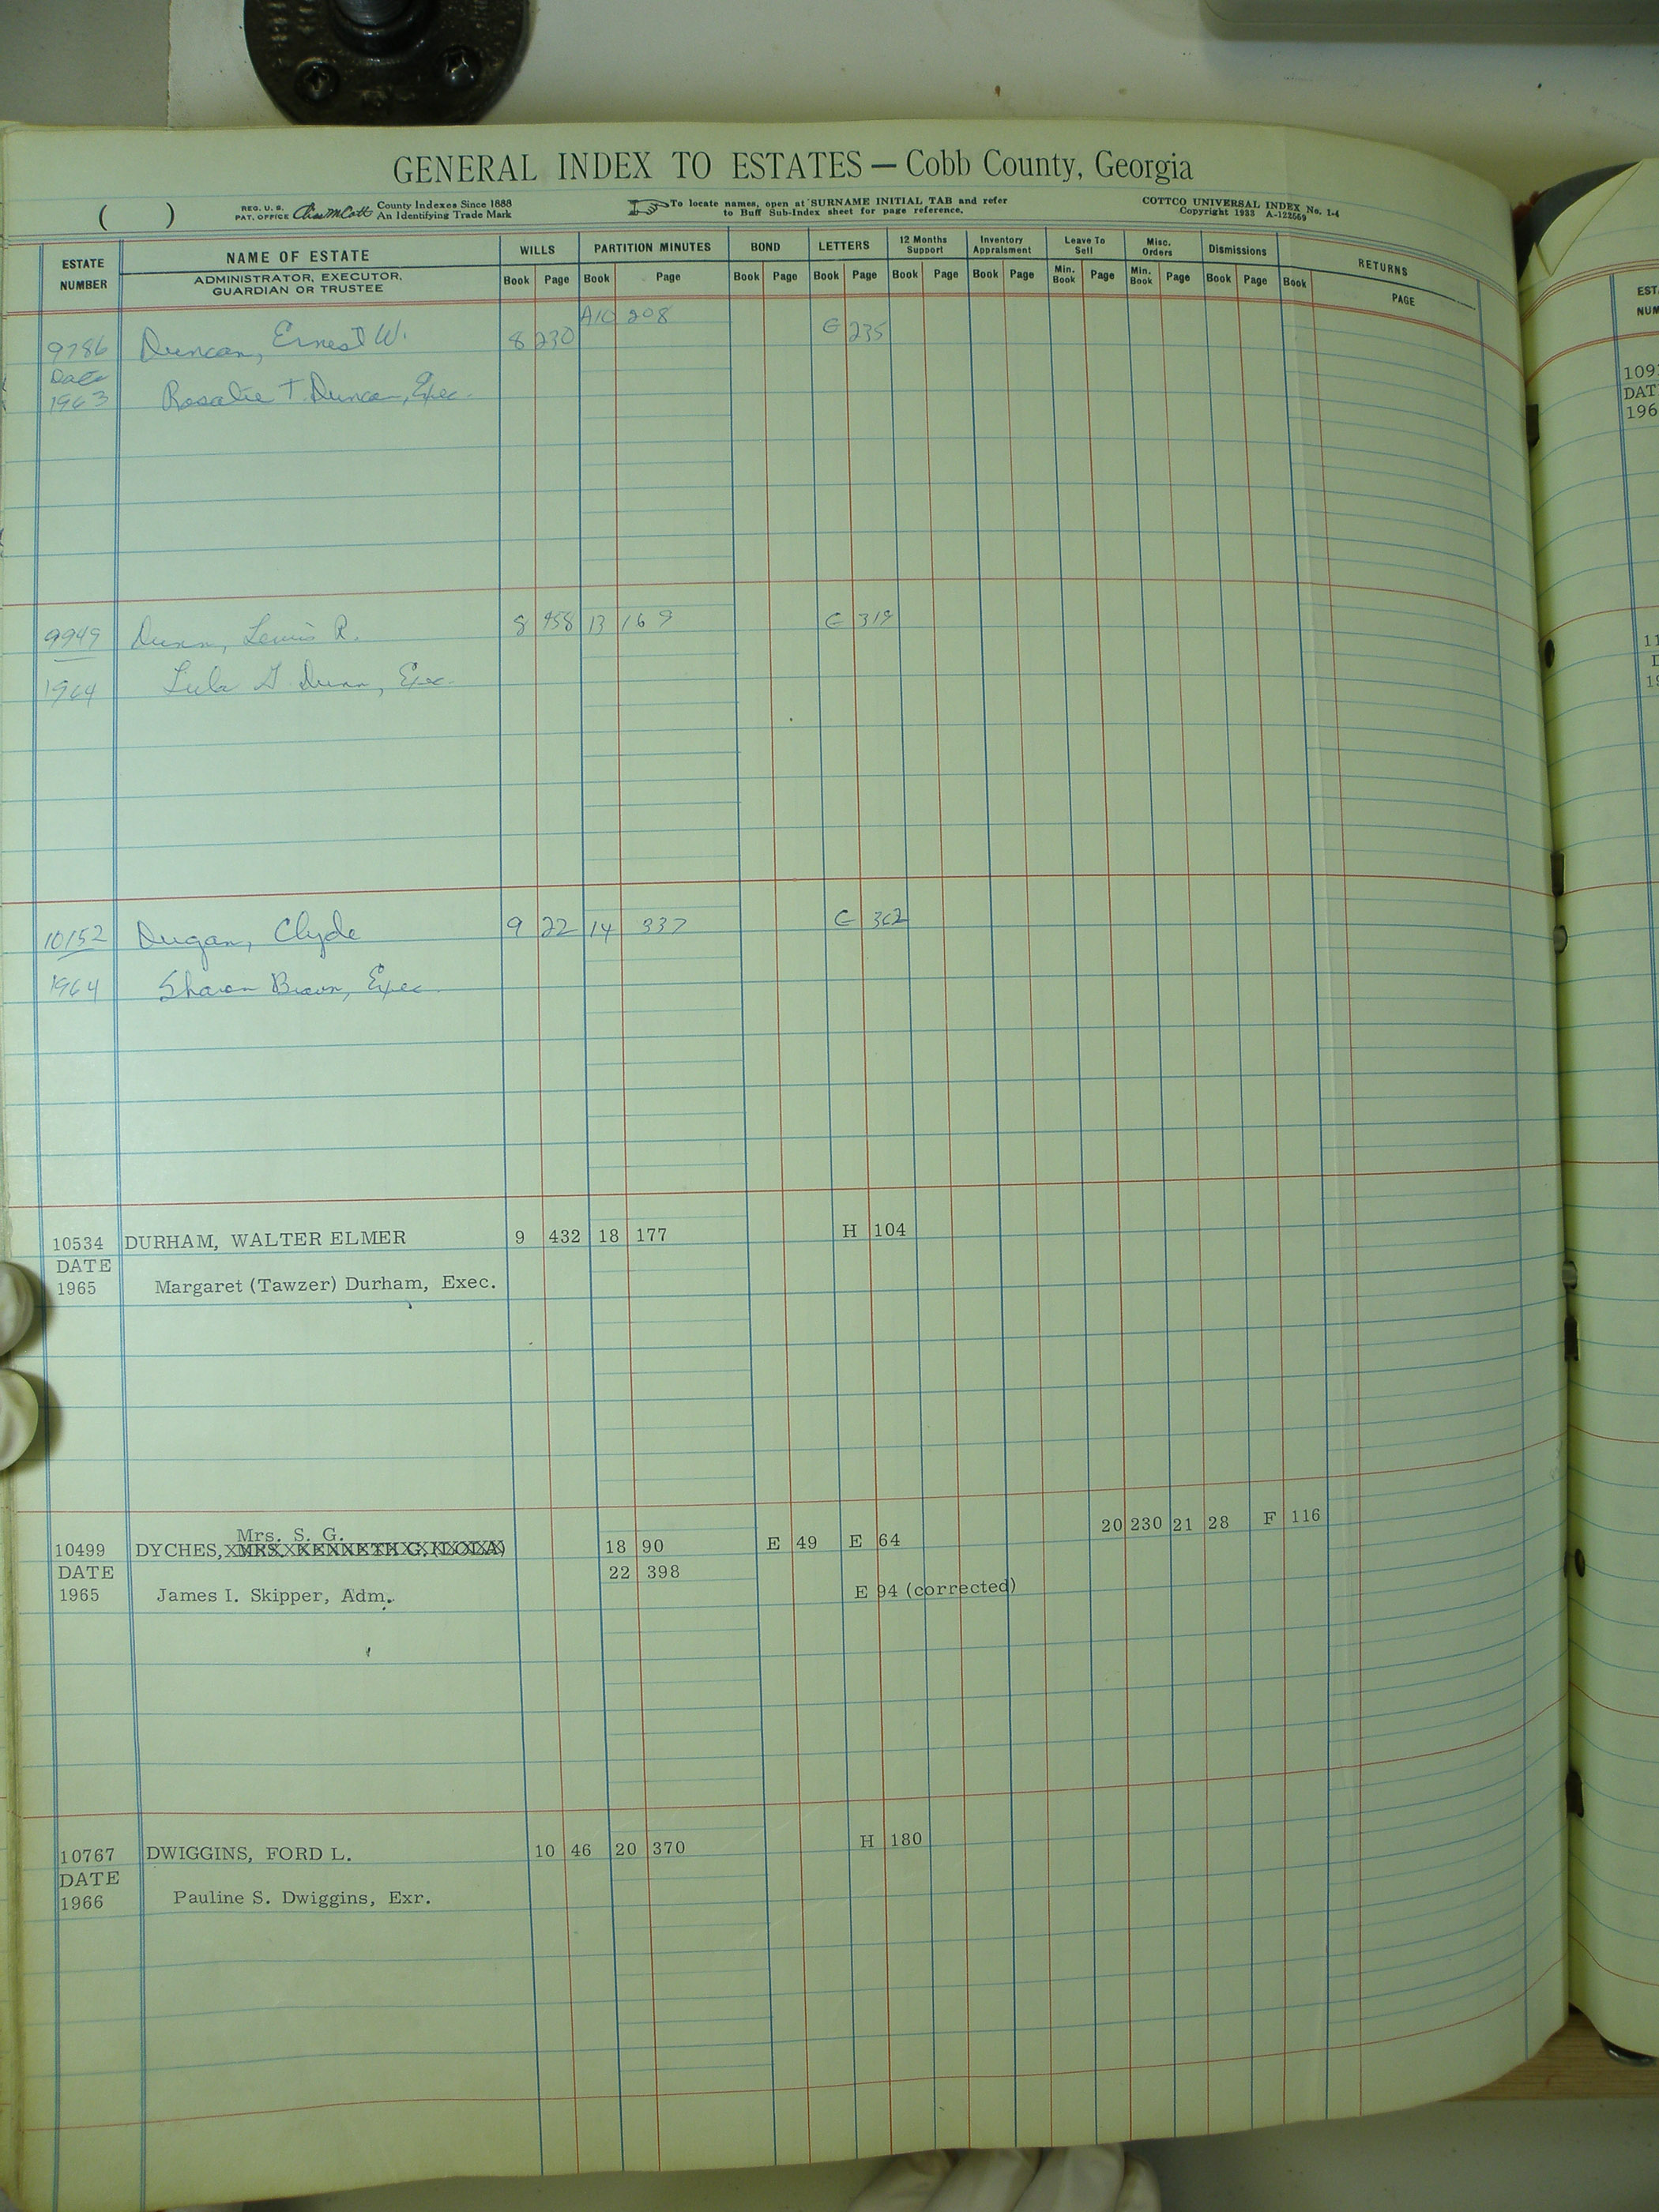 GENERAL INDEX TO ESTATES — Cobb County, Georgia
( ) REG. U. S. PAT. OFFICE County Indexes Since 1888 An Identifying Trade Mark
To locate names, open at SURNAME INITIAL TAB and refer to Buff Sub-Index sheet for page reference.
COTTCO UNIVERSAL INDEX No. 1-4
Copyright 1933 A-122569
ESTATE NUMBER NAME OF ESTATE WILLS PARTITION MINUTES BOND LETTERS 12 Months Support Inventory Appraisment Leave To Sell Misc. Orders Dismissions RETURNS
ADMINISTRATOR, EXECUTOR, GUARDIAN OR TRUSTEE Book Page Book Page Book Page Book Page Book Page Book Page Min. Book Page Min. Book Page Book Page Book PAGE
A10 208
9786 Duncan, Ernest W. 8 230 G 235
Date
1963 Rosalie T. Duncan, Exec.
9949 Dunn, Lewis R. 8 458 13 169 G 319
1964 Lula G Dunn, Exec.
10152 Dugan, Clyde 9 22 14 337 G 362
1964 Sharon Brown, Exec.
10534 DURHAM, WALTER ELMER 9 432 18 177 H 104
DATE
1965 Margaret (Tawzer) Durham, Exec.
Mrs. S. G. 20 230 21 28 F 116
10499 DYCHES, MRS. KENNETH G. (LOLA) 18 90 E 49 E 64
DATE 22 398
1965 James I. Skipper, Adm. E 94 (corrected)
10767 DWIGGINS, FORD L. 10 46 20 370 H 180
DATE
1966 Pauline S. Dwiggins, Exr.